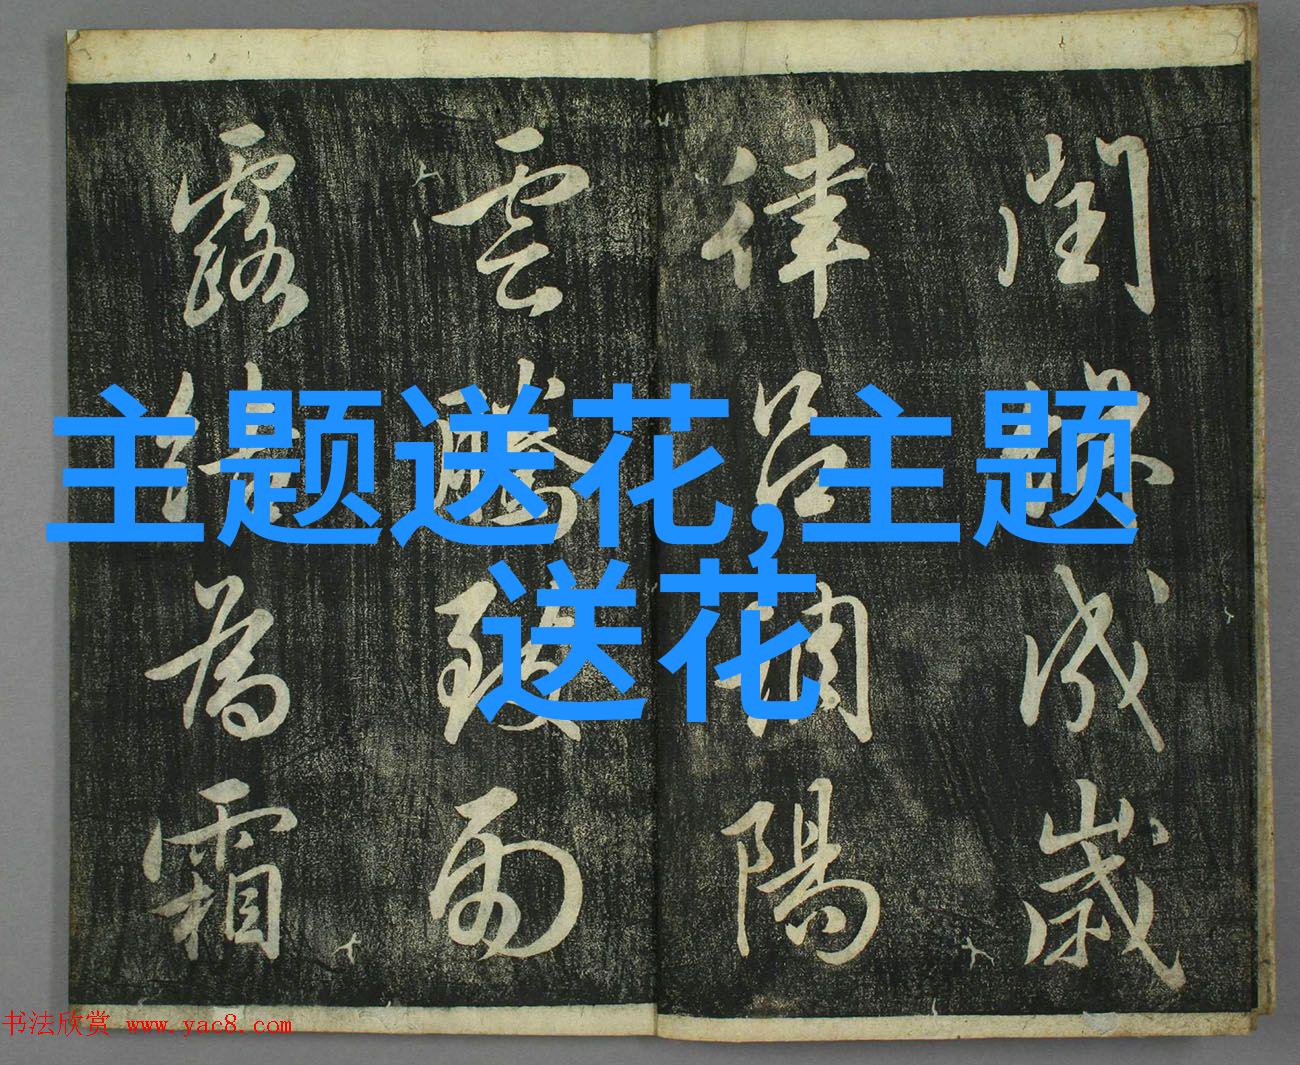 閏餘成歲
律呂調陽
雲騰致雨
露結為霜
主题送花,主题
送花
书法欣赏 www.yac8.com